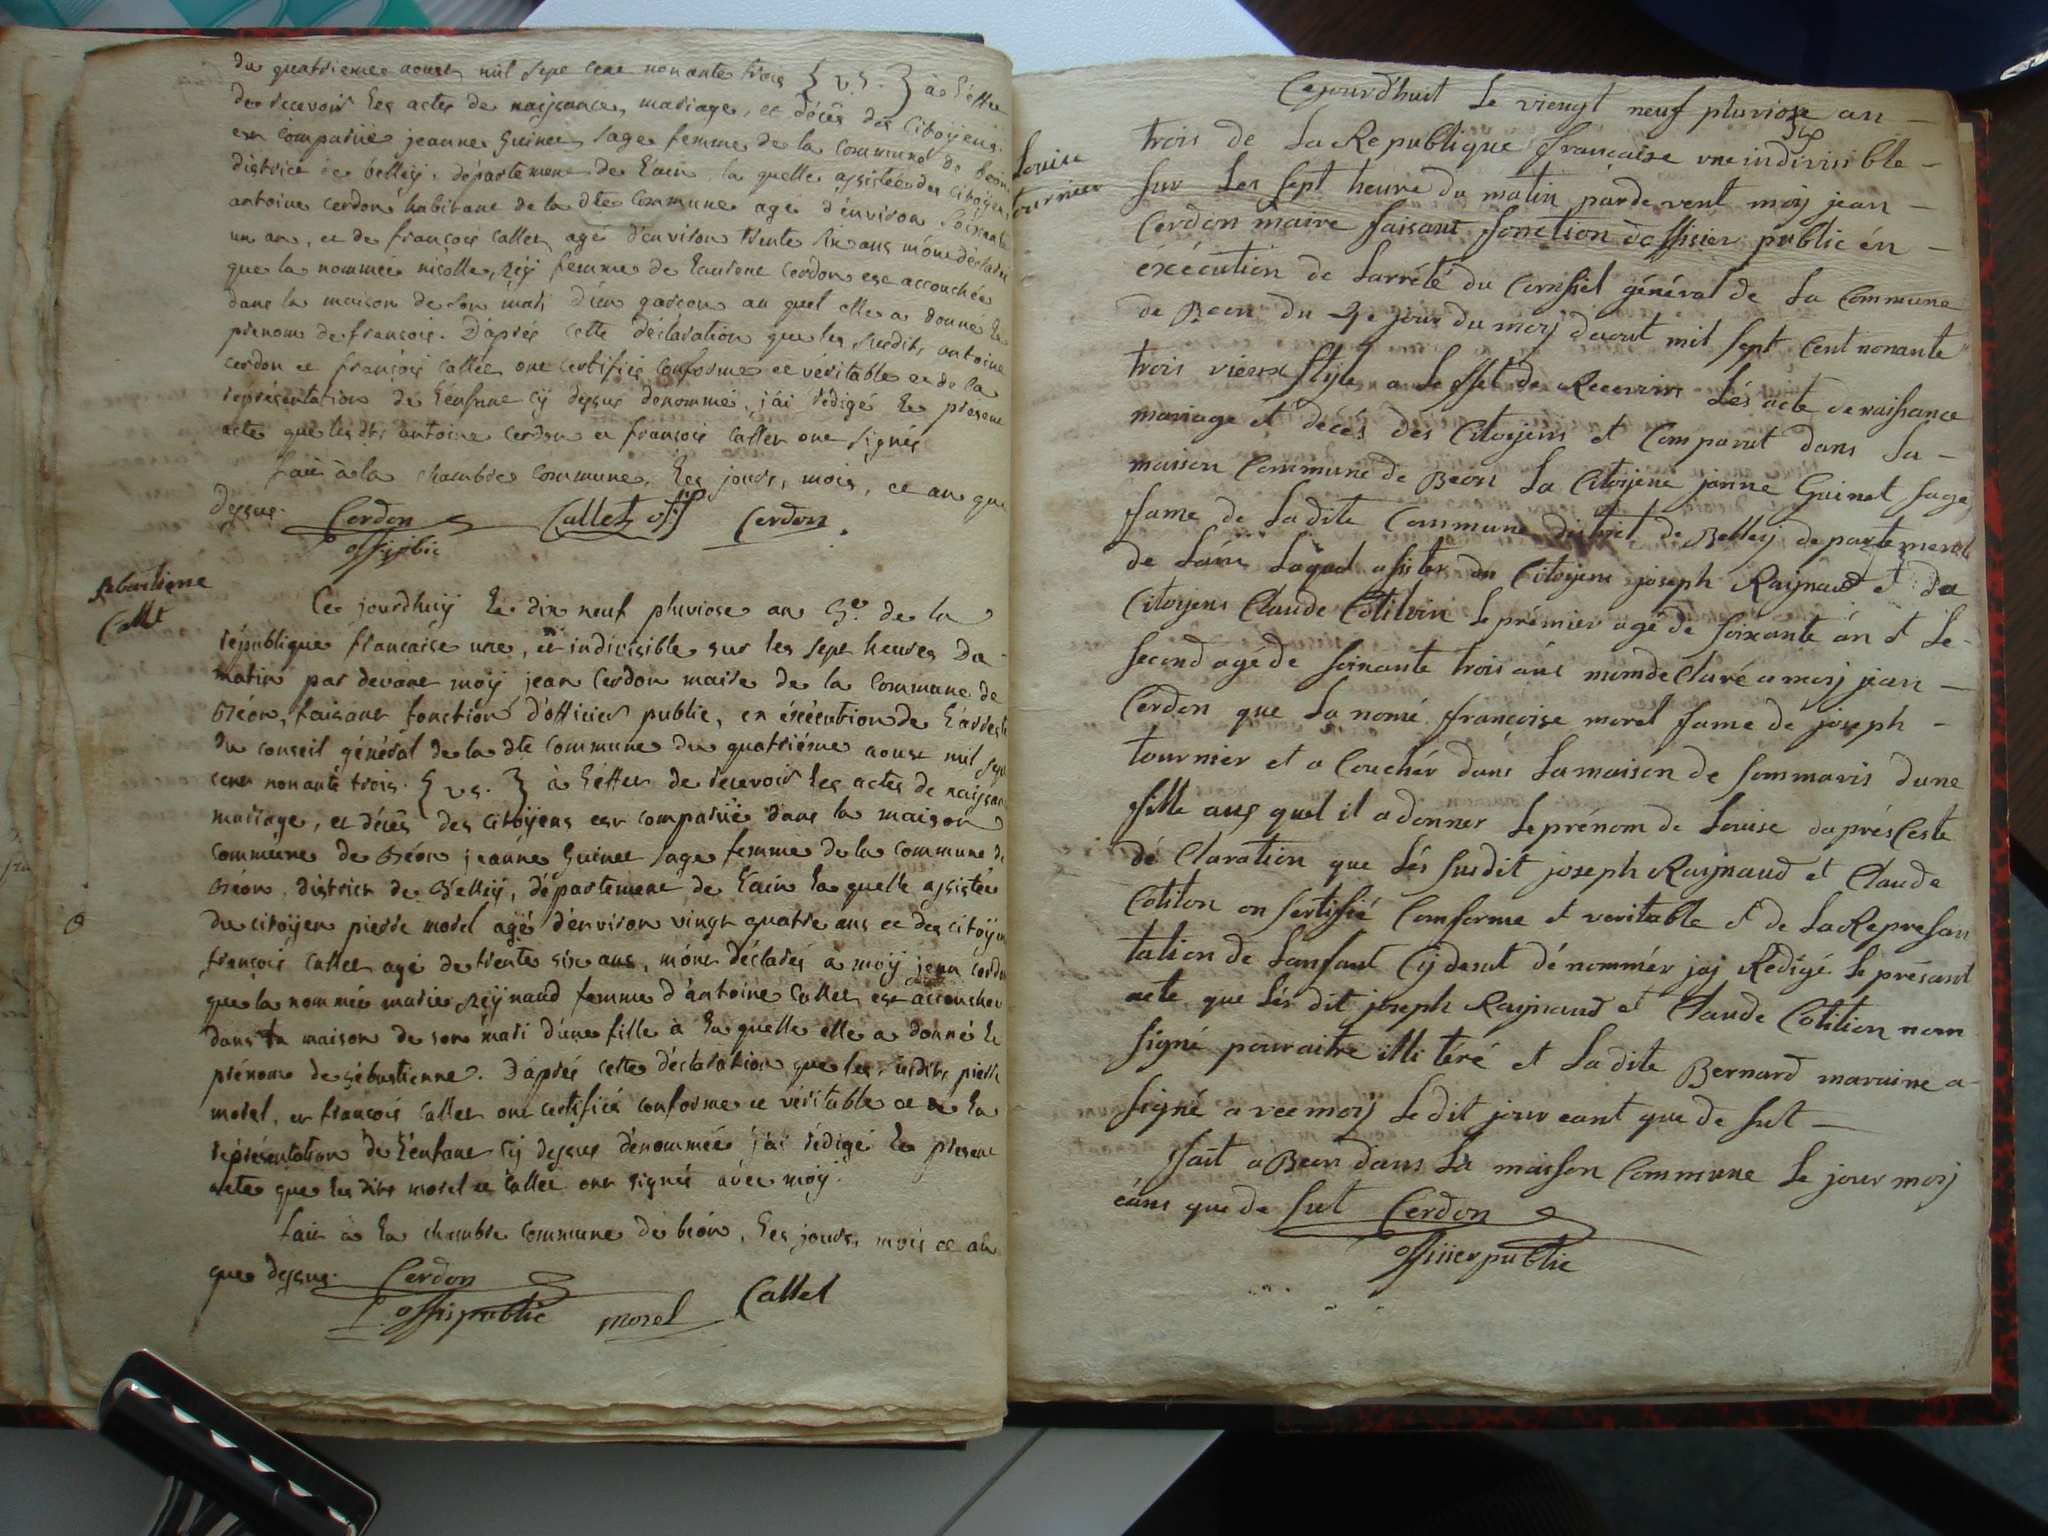 du quatrieme aoust mil sept cent nonante trois { v.s. } à l'effet
de recevoir les actes de naissance, mariage, et décès des citoyens
est comparüe jeanne Guinet sage femme de la commune de béon
district de belleÿ, département de l'ain la quelle assistée des citoyens
antoine cerdon habitant de la dte commune agé d'environ soixante
un an, et de françois callet agé d'environ trente six ans m'ont déclaré
que la nommée nicolle, reÿ femme de laurent cerdon est accouchée
dans la maison de son mari d'un garçon au quel elle a donné le
prenom de françois. D'aprés cette déclaration que les susdits antoine
cerdon et françois callet ont certifié conforme et véritable et de la
représentation de l'enfant cÿ dessus denommé, j'ai rédigé le présent
acte que les dts antoine cerdon et françois callet ont signés
fait à la chambre commune, les jours, mois, et an que
dessus. Cerdon Callet off Cerdon
offi public
Sebastiene
Callet
Ce jourdhuÿ le dix neuf pluviose an 3e. de la
république francaise une, et indivisible sur les sept heures du
matin par devant moÿ jean Cerdon maire de la commune de
Béon, faisant fonction d'officier public, en éxécution de l'arresté
du conseil général de la dte commune du quatriéme aoust mil sept
cent nonante trois. { v.s. } à l'effet de recevoir les actes de naissan
mariage, et décès des citoÿens est comparüe dans la maison
commune de Béon jeanne Guinet sage femme de la commune de
Béon district de Belleÿ, département de l'ain la quelle assistée
du citoyen pierre morel agé d'environ vingt quatre ans et des citoyen
françois callet agé de trente six ans, m'ont déclarés à moÿ jean cerdon
que la nommée marie Reÿnaud femme d'antoine callet est accouchée
dans la maison de son mari d'une fille à la quelle elle a donné le
prénom de sébastienne. D'aprés cette déclaration que les susdits pierre
morel, et françois callet ont certifié conforme et véritable et de la
représentation de l'enfant cÿ dessus dénommée j'ai rédigé le present
acte que les dits morel et callet ont signés avec moÿ.
fait à la chambre commune de béon, les jours, mois et an
que dessus. Cerdon
offis public morel Callet
Louise
tournier
Cejourd'huit Le viengt neuf pluviose an
trois de La Republique française une indivisible
sur Les sept heure du matin pardevent moy jean
Cerdon maire faisant fonction d'offisier public én
éxécution de L'arrété du Consiel général de La Commune
de Beon du 4e jour du mois d'aout mil sept Cent nonante
trois vieux stile a Leffet de Recevoirs Lés acte de naissance
mariage et décés dés Citoyens et Comparut dans La
maison Commune de Beon La Citoÿene janne Guinet sage
fame de Ladite Commune district de Belleÿ departement
de Lain Laquel assister du Citoyens joseph Raÿnaud et du
Citoyens Claude Cotilion Le prémier agé de soixante án et Le
second agé de soixante trois ans m'omde Claré a moy jean
Cerdon que La nomé françoise morel fame de joseph
tournier et a Couchér dans La maison de sommaris dune
fille auquel il a donner Le prénom de Louise daprés Ceste
dé Claration que Lés susdit joseph Raÿnaud et Claude
Cotition on sertifié Comforme et veritable et de La Represan
tation de L'anfant Cÿ desut dénommér jaÿ Rédigé Le présant
acte que Lés dit joseph Raÿnaud et Claude Cotition nom
signé pouraitre illi téré et Ladite Bernard maraine a
signé avec moy Ledit jour eant que de sut
fait a Beon dans La maison Commune Le jour moy
éans que de sut Cerdon
offisier public